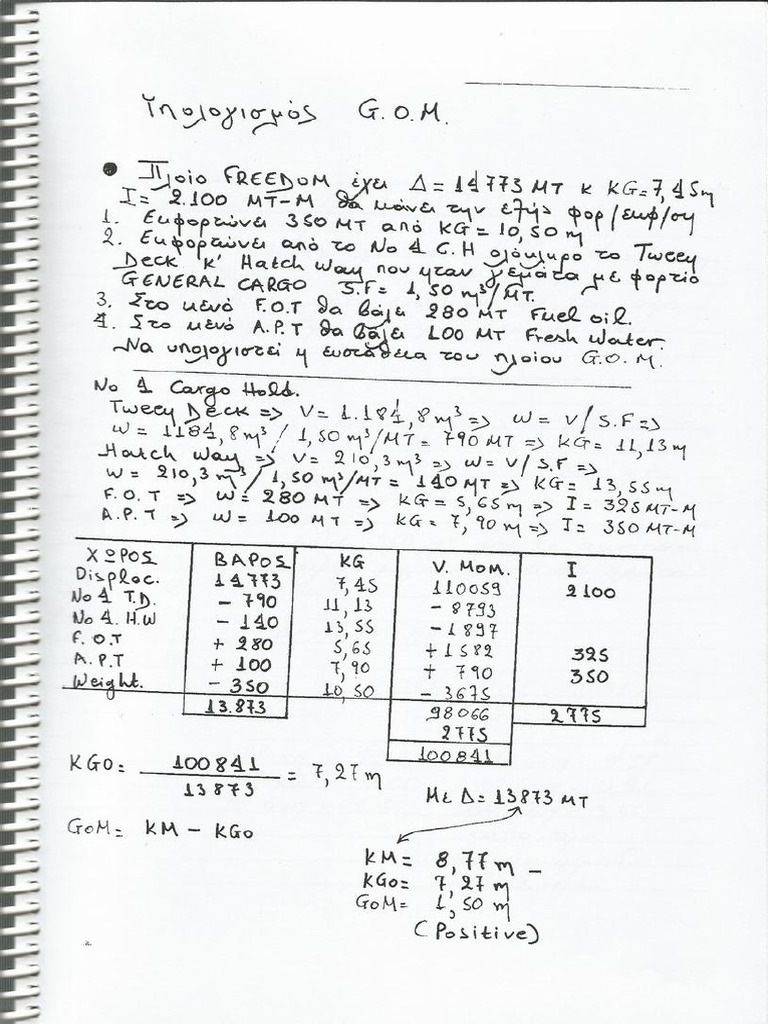 Υπολογισμός G.O.M.
• Πλοίο FREEDOM έχει Δ = 14773 MT κ KG=7,45m
I= 2.100 MT-M θα κάνει την εξής φορ/εκφ/ση
1. Εκφορτώνει 350 MT από KG= 10,50 m
2. Εκφορτώνει από το No 1 C.H ολόκληρο το Tweey
Deck κ' Hatch Way που ηταν γεμάτα με φορτίο
GENERAL CARGO S.F= 1,50 m³/MT.
3. Στο κενό F.O.T θα βάλει 280 MT Fuel oil.
4. Στο κενό A.P.T θα βάλει 100 MT Fresh Water.
Να υπολογιστεί η ευστάθεια του πλοίου G.O.M.
No 1 Cargo Hold.
Tweey Deck => V= 1.184,8m³=> w= v/S.F=>
w= 1184,8m³ / 1,50 m³/MT= 790 MT => KG= 11,13m
Hatch Way => V= 210,3m³ => w= v/S.F =>
w= 210,3 m³ / 1,50 m³/MT = 140 MT=> KG= 13,55m
F.O.T => w= 280 MT => KG= 5,65m => I= 325MT-M
A.P.T => w= 100 MT => KG= 7,90m => I= 350MT-M
ΧΩΡΟΣ ΒΑΡΟΣ KG V. MOM. I
Disploc. 14773 7,45 110059 2100
No 1 T.D. - 790 11,13 - 8793
No 1. H.W - 140 13,55 - 1897
F.O.T + 280 5,65 +1582 325
A.P.T + 100 7,90 + 790 350
Weight. - 350 10,50 - 3675
13.873 98066 2775
2775
100841
KGO= 100841 / 13873 = 7,27 m
Με Δ= 13873 MT
GOM= KM - KGO
KM= 8,77 m -
KGO= 7,27 m
GOM= 1,50 m
(Positive)